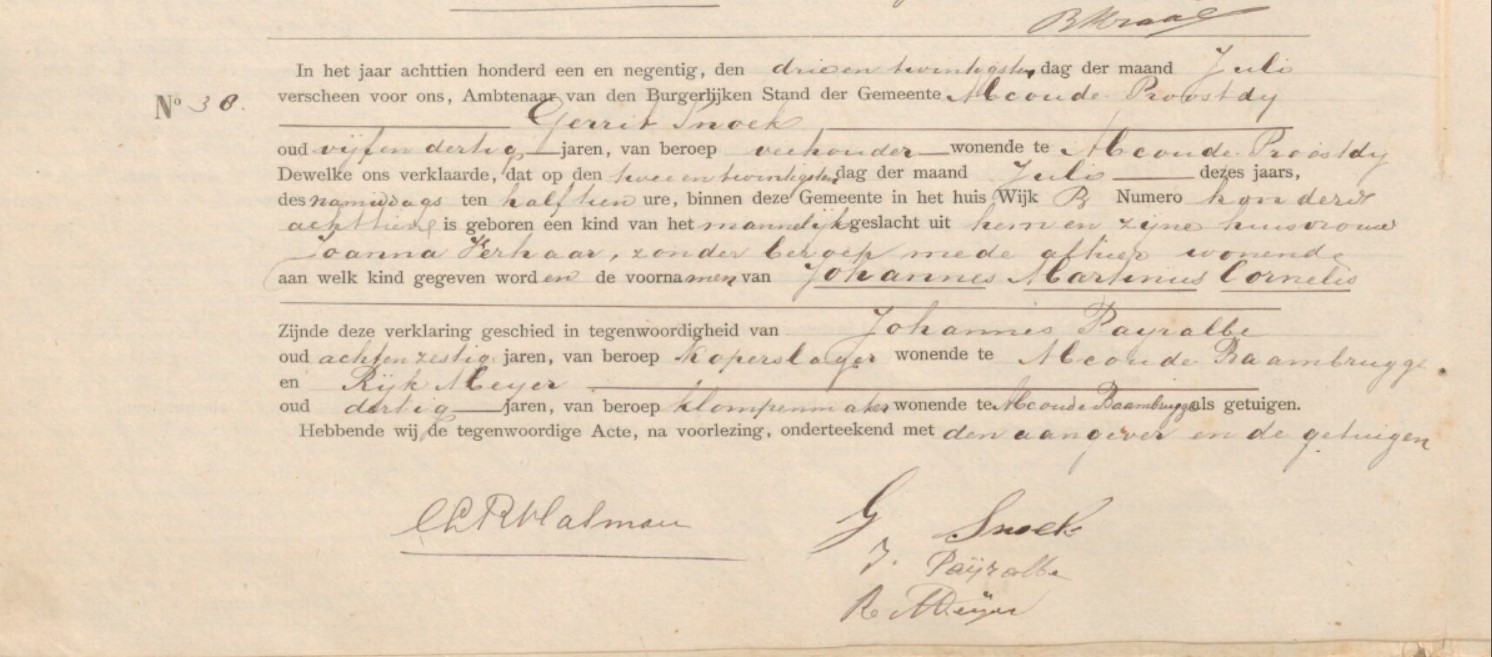 B Kraal
In het jaar achttien honderd een en negentig, den drieentwintigsten dag der maand Juli
No 30.
verscheen voor ons, Ambtenaar van den Burgerlijken Stand der Gemeente Abcoude Proostdy
Gerrit Snoek
oud vijfendertig jaren, van beroep veehouder wonende te Abcoude Proostdy
Dewelke ons verklaarde, dat op den tweeentwintigsten dag der maand Juli dezes jaars,
des namiddags ten half tien ure, binnen deze Gemeente in het huis Wijk B Numero honderd
achttien is geboren een kind van het mannelijk geslacht uit hem en zijne huisvrouw
Joanna Verhaar, zonder beroep mede alhier wonende
aan welk kind gegeven worden de voornamen van Johannes Martinus Cornelis
Zijnde deze verklaring geschied in tegenwoordigheid van Johannes Payralbe
oud achtenzestig jaren, van beroep Koperslager wonende te Abcoude Baambrugge
en Rijk Meyer
oud dertig jaren, van beroep klompenmaker wonende te Abcoude Baambrugge als getuigen.
Hebbende wij de tegenwoordige Acte, na voorlezing, onderteekend met den aangever en de getuigen
G Snoek
J. Paÿralbe
R Meÿer